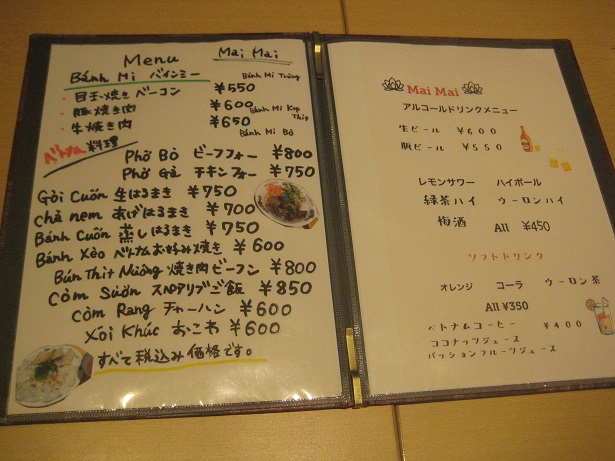 Menu Mai Mai
Bánh Mì バインミー
・目玉焼きベーコン ¥550 Bánh Mì Trứng
・豚焼き肉 ¥600 Bánh Mì Kẹp Thịt
・牛焼き肉 ¥650 Bánh Mì Bò
ベトナム料理
Phở Bò ビーフフォー ¥800
Phở Gà チキンフォー ¥750
Gỏi Cuốn 生はるまき ¥750
chả nem あげはるまき ¥700
Bánh Cuốn 蒸しはるまき ¥750
Bánh Xèo ベトナムお好み焼き ¥600
Bún Thịt Nướng 焼き肉ビーフン ¥800
Cơm Sườn スペアリブご飯 ¥850
Cơm Rang チャーハン ¥600
Xôi Khúc おこわ ¥600
すべて税込み価格です。
Mai Mai
アルコールドリンクメニュー
生ビール ¥600
瓶ビール ¥550
レモンサワー ハイボール
緑茶ハイ ウーロンハイ
梅酒 All ¥450
ソフトドリンク
オレンジ コーラ ウーロン茶
All ¥350
ベトナムコーヒー ¥400
ココナッツジュース
パッションフルーツジュース